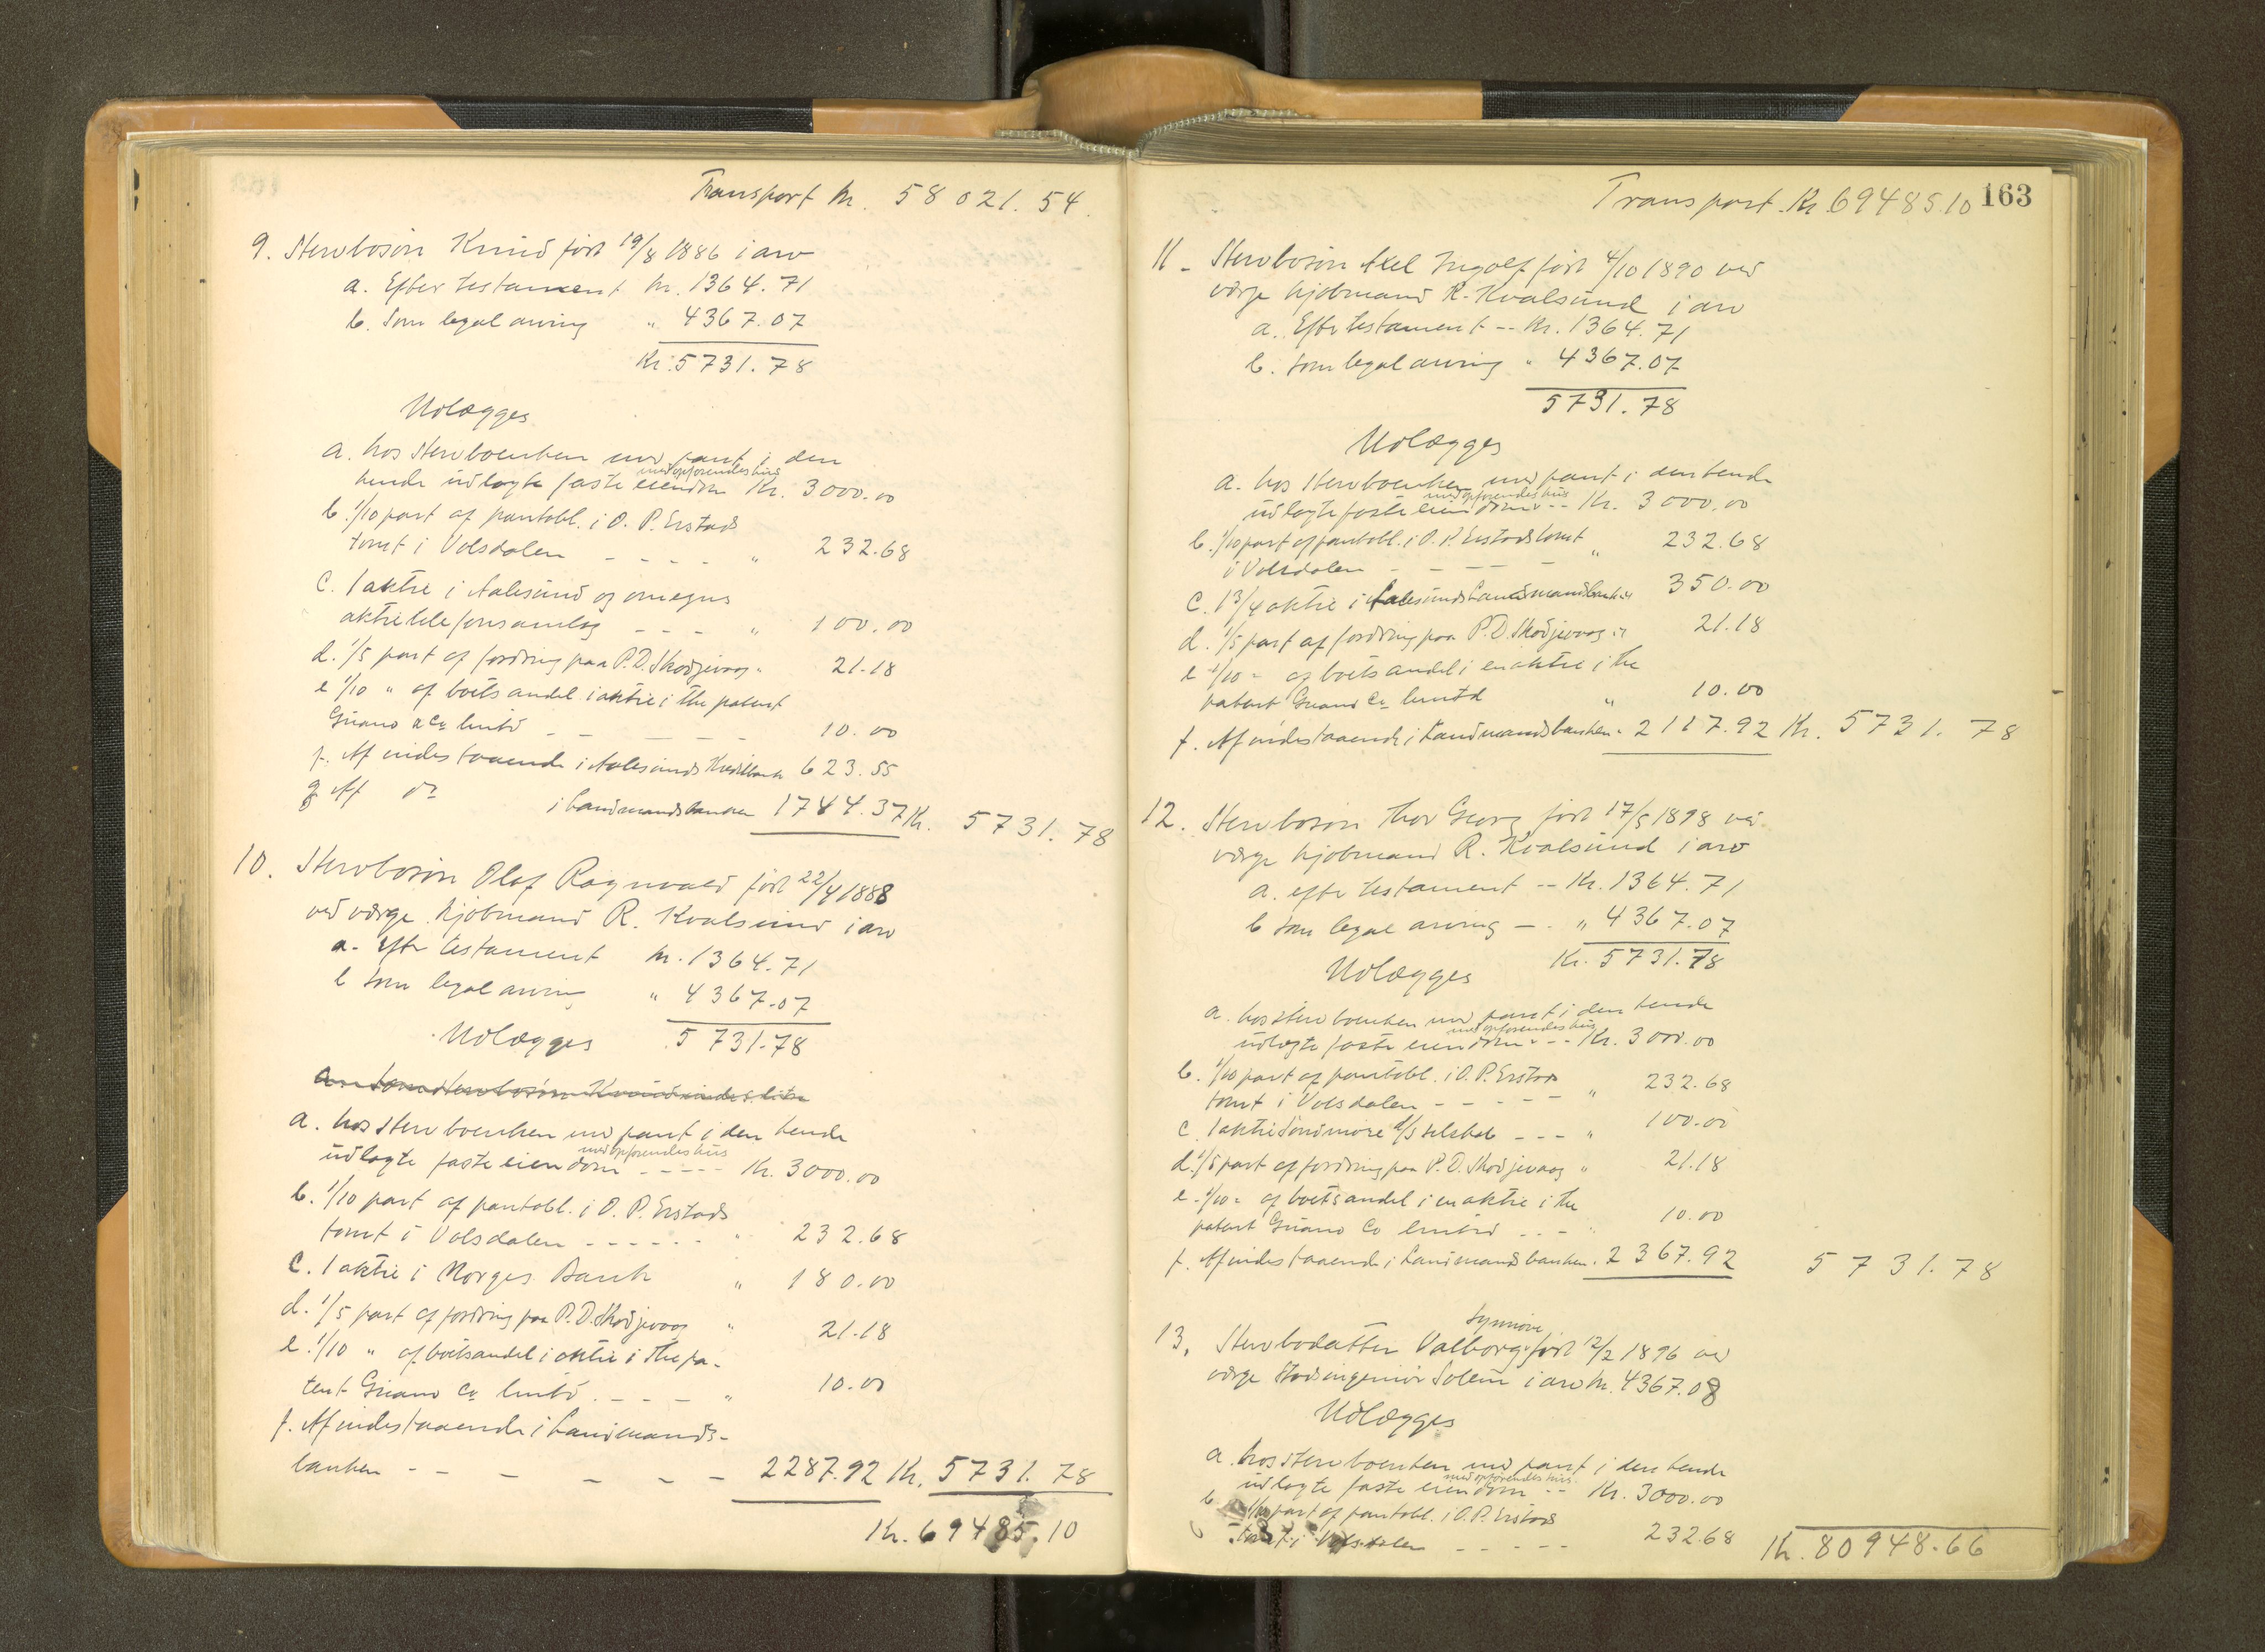 Transport Kr. 58021.54.
9. Stervbosøn Knud født 19/8 1886 i arv
a. Efter testament Kr. 1364.71
b. Som legal arving " 4367.07
Kr. 5731.78
Udlægges
a. hos stervboenken mod pant i den
med opførendes hus
hende udlagte faste eiendom Kr. 3000.00
b. 1/10 part af pantobl. i O. P. Erstads
tomt i Volsdalen - - - - " 232.68
c. 1 aktie i Aalesund og omegns
aktietelefonsamlag - - - " 100.00
d. 1/5 part af fordring paa P. D. Skodjevaag " 21.18
e 1/10 " af boets andel i aktie i The patent
Guano & Co limtd - - - - - 10.00
f. Af indestaaende i Aalesunds Kreditbank 623.55
g Af do i Landmandsbanken 1744.37 Kr. 5731.78
10. Stervbosøn Olaf Ragnvald født 22/4 1888
ved værge kjøbmand R. Kvalsund i arv
a. Eftr testament Kr. 1364.71
b som legal arving " 4367.07
Udlægges 5731.78
a. hos stervboenken mod pant i den hende
med opførendes hus
udlagte faste eiendom - - - - - Kr. 3000.00
b. 1/10 part af pantobl. i O. P. Erstads
tomt i Volsdalen - - - - - - " 232.68
c. 1 aktie i Norges Bank " 180.00
d. 1/5 part af fordring paa P. D. Skodjevaag " 21.18
e. 1/10 " af boets andel i aktie i The pa-
tent Guano Co limtd. - - - - " 10.00
f. Af indestaaende i Landmands-
banken - - - - - - 2287.92 Kr. 5731.78
Kr. 69485.10
Transport. Kr. 69485.10 163
11 - Stervbosøn Axel Ingolf født 4/10 1890 ved
værge kjøbmand R. Kvalsund i arv
a. Eftr testament -- Kr. 1364.71
b. som legal arving " 4367.07
5731.78
Udlægges
a. hos stervboenken mod pant i den hende
med opførendes hus
udlagte faste eiendom -- Kr. 3000.00
b. 1/10 part af pantobl. i O. P. Erstads tomt
i Volsdalen - - - - - " 232.68
c. 1 3/4 aktie i Aalesunds Landmandsbank " 350.00
d. 1/5 part af fordring paa P. D. Skodjevaag " 21.18
e 1/10 " af boets andel i en aktie i the
patent Guano Co limtd " 10.00
f. Af indestaaende i Landmandsbanken " 2117.92 Kr. 5731.78
12. Stervbosøn Thor Georg født 17/5 1898 ved
værge kjøbmand R. Kvalsund i arv
a. eftr testament -- Kr. 1364.71
b som legal arving - . " 4367.07
Udlægges Kr. 5731.78
a. hos stervboenken mod pant i den hende
med opførendes hus
udlagte faste eiendom -- Kr. 3000.00
b. 1/10 part af pantobl. i O. P. Erstads
tomt i Volsdalen - - - - - " 232.68
c. 1 aktie Søndmøre d/s selskab - - - " 100.00
d. 1/5 part af fordring paa P. D. Skodjevaag " 21.18
e - 1/10 " af boets andel i en aktie i the
patent Guano Co limtd - - - " 10.00
f. Af indestaaende i Landmandsbanken. 2367.92 5731.78
Synnøve
13. Stervbodatter Valborg født 12/2 1896 ved
værge Stadsingeniør Solem i arv Kr. 4367.08
Udlægges
a. hos stervboenken mod pant i den hende
med opførendes hus
udlagte faste eiendom -- Kr. 3000.00
b. 1/10 part af pantobl. i O. P. Erstads
tomt i Volsdalen - - - - - 232.68
Kr. 80948.66